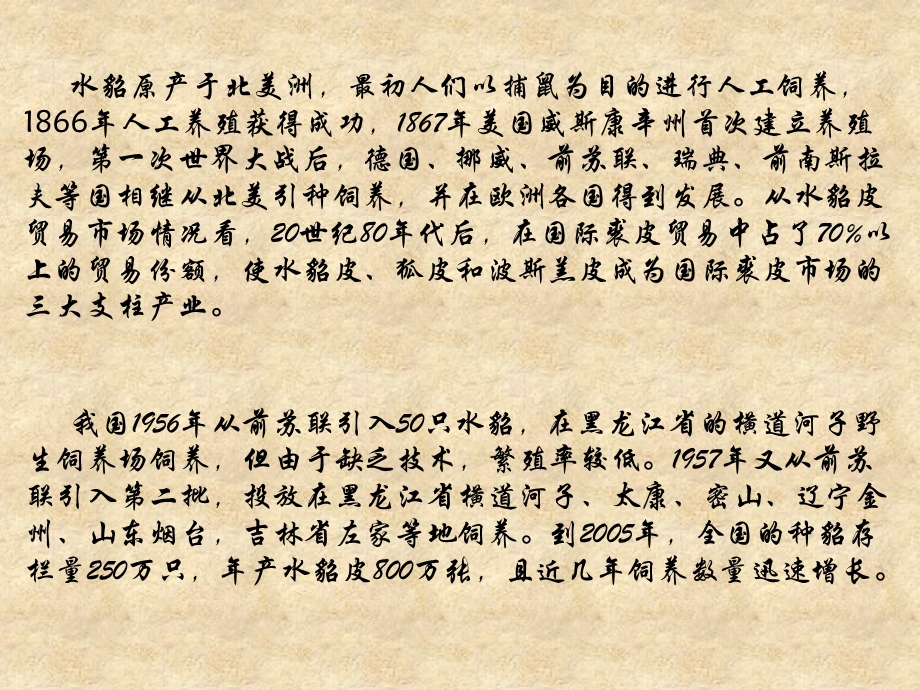 水貂原产于北美洲，最初人们以捕鼠为目的进行人工饲养，
1866年人工养殖获得成功，1867年美国威斯康辛州首次建立养殖
场，第一次世界大战后，德国、挪威、前苏联、瑞典、前南斯拉
夫等国相继从北美引种饲养，并在欧洲各国得到发展。从水貂皮
贸易市场情况看，20世纪80年代后，在国际裘皮贸易中占了70%以
上的贸易份额，使水貂皮、狐皮和波斯羔皮成为国际裘皮市场的
三大支柱产业。
我国1956年从前苏联引入50只水貂，在黑龙江省的横道河子野
生饲养场饲养，但由于缺乏技术，繁殖率较低。1957年又从前苏
联引入第二批，投放在黑龙江省横道河子、太康、密山、辽宁金
州、山东烟台，吉林省左家等地饲养。到2005年，全国的种貂存
栏量250万只，年产水貂皮800万张，且近几年饲养数量迅速增长。